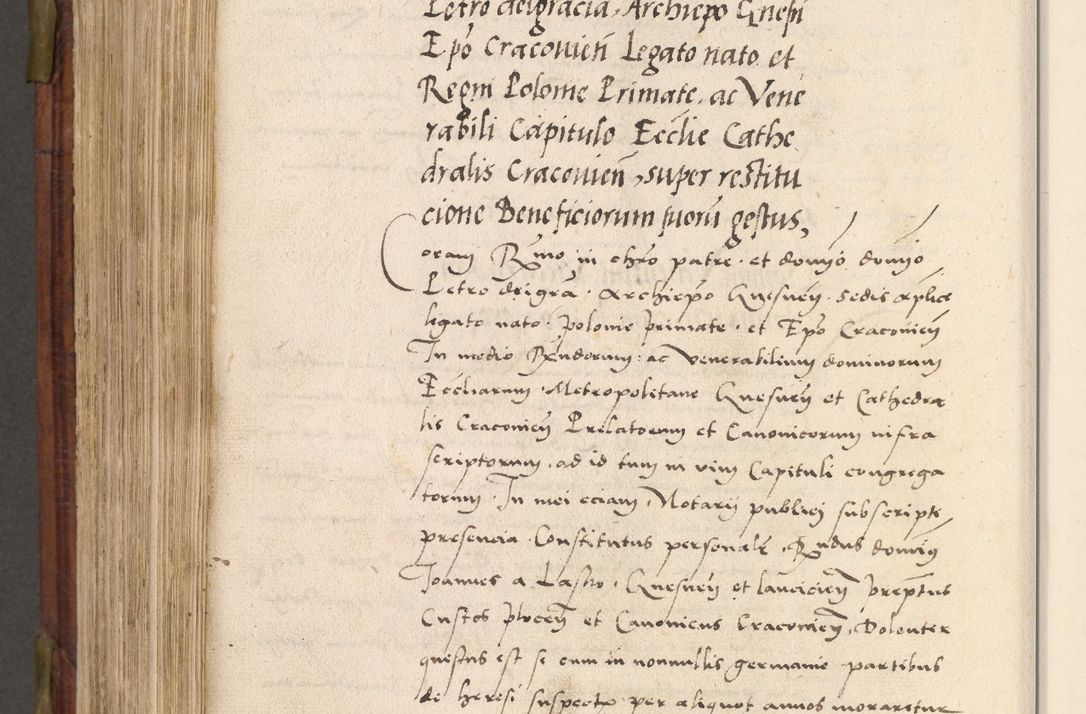 Petro dei gracia, Archiepo Gnesn
Epo Cracovien Legato nato et
Regni Polonie Primate, ac Vene
rabili Capitulo Ecclie Cathe
dralis Cracovien, super restitu
cione Beneficiorum suorum gestus,
Coram Rmo in chro patre et domio domio
Petro dei gra Archiepo Gnesnen sedis aplice
legato nato Polonie primate et Epo Cracovien
In medio Rndorum ac venerabilium dominorum
Eccliarum Metropolitane Gnesnen et Cathedra
lis Cracovien Prelatorum et Canonicorum infra
scriptorum, ad id tum in vim Capituli congrega
torum In mei eciam Notarii publici subscripti
presencia Constitutus personalr Rndus domins
Joannes a Lasko Gnesnen et lancicien prepttus
Custos plocen et Canonicus Cracovien, Dolenter
questus est se cum in nonnullis germanie partibus
de heresi suspecto per aliquot annos moraretur